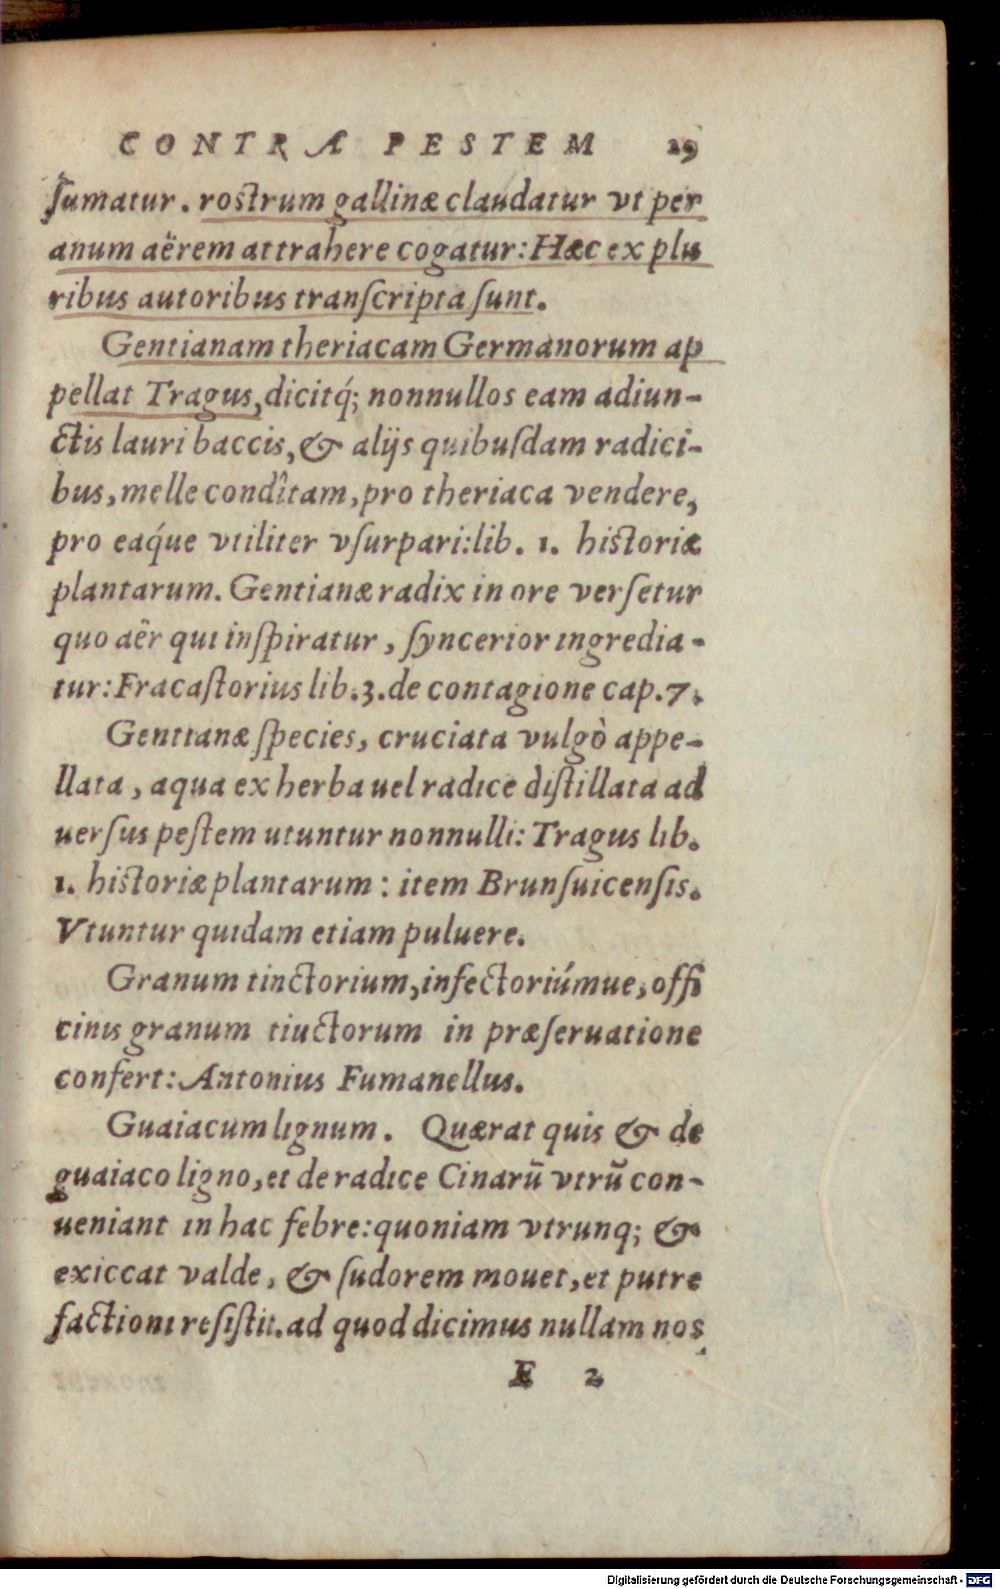 CONTRA PESTEM 29
ſumatur. roſtrum gallinæ claudatur vt per
anum aërem attrahere cogatur: Hæc ex plu
ribus autoribus tranſcripta ſunt.
Gentianam theriacam Germanorum ap
pellat Tragus, dicitq́; nonnullos eam adiun-
ctis lauri baccis, & alijs quibuſdam radici-
bus, melle condîtam, pro theriaca vendere,
pro eaq́ue vtiliter vſurpari: lib. 1. hiſtoriæ
plantarum. Gentianæ radix in ore verſetur
quo aër qui inſpiratur, ſyncerior ingredia-
tur: Fracaſtorius lib. 3. de contagione cap. 7.
Gentianæ ſpecies, cruciata vulgò appe-
llata, aqua ex herba uel radice diſtillata ad
uerſus peſtem utuntur nonnulli: Tragus lib.
1. hiſtoriæ plantarum: item Brunſuicenſis.
Vtuntur quidam etiam puluere.
Granum tinctorium, infectoriúmue, offi
cinis granum tiuctorum in præſeruatione
confert: Antonius Fumanellus.
Guaiacum lignum. Quærat quis & de
guaiaco ligno, et de radice Cinarū vtrū con-
ueniant in hac febre: quoniam vtrunq; &
exiccat valde, & ſudorem mouet, et putre
factioni reſiſtit. ad quod dicimus nullam nos
E 2
Digitalisierung gefördert durch die Deutsche Forschungsgemeinschaft - DFG